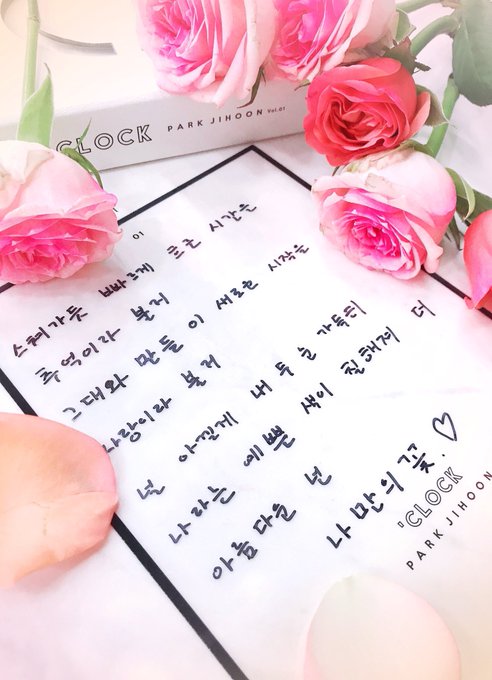 'CLOCK PARK JIHOON Vol.01
01
스쳐가듯 빠르게 흐른 시간은
추억이라 불러
그대와 만들 이 새로운 시작을
사랑이라 불러
널 아낄게 내 두 손 가득히
나라는 예쁜 색이 칠해져 더
아름다운 넌
나만의 꽃.♡
'CLOCK
PARK JIHOON